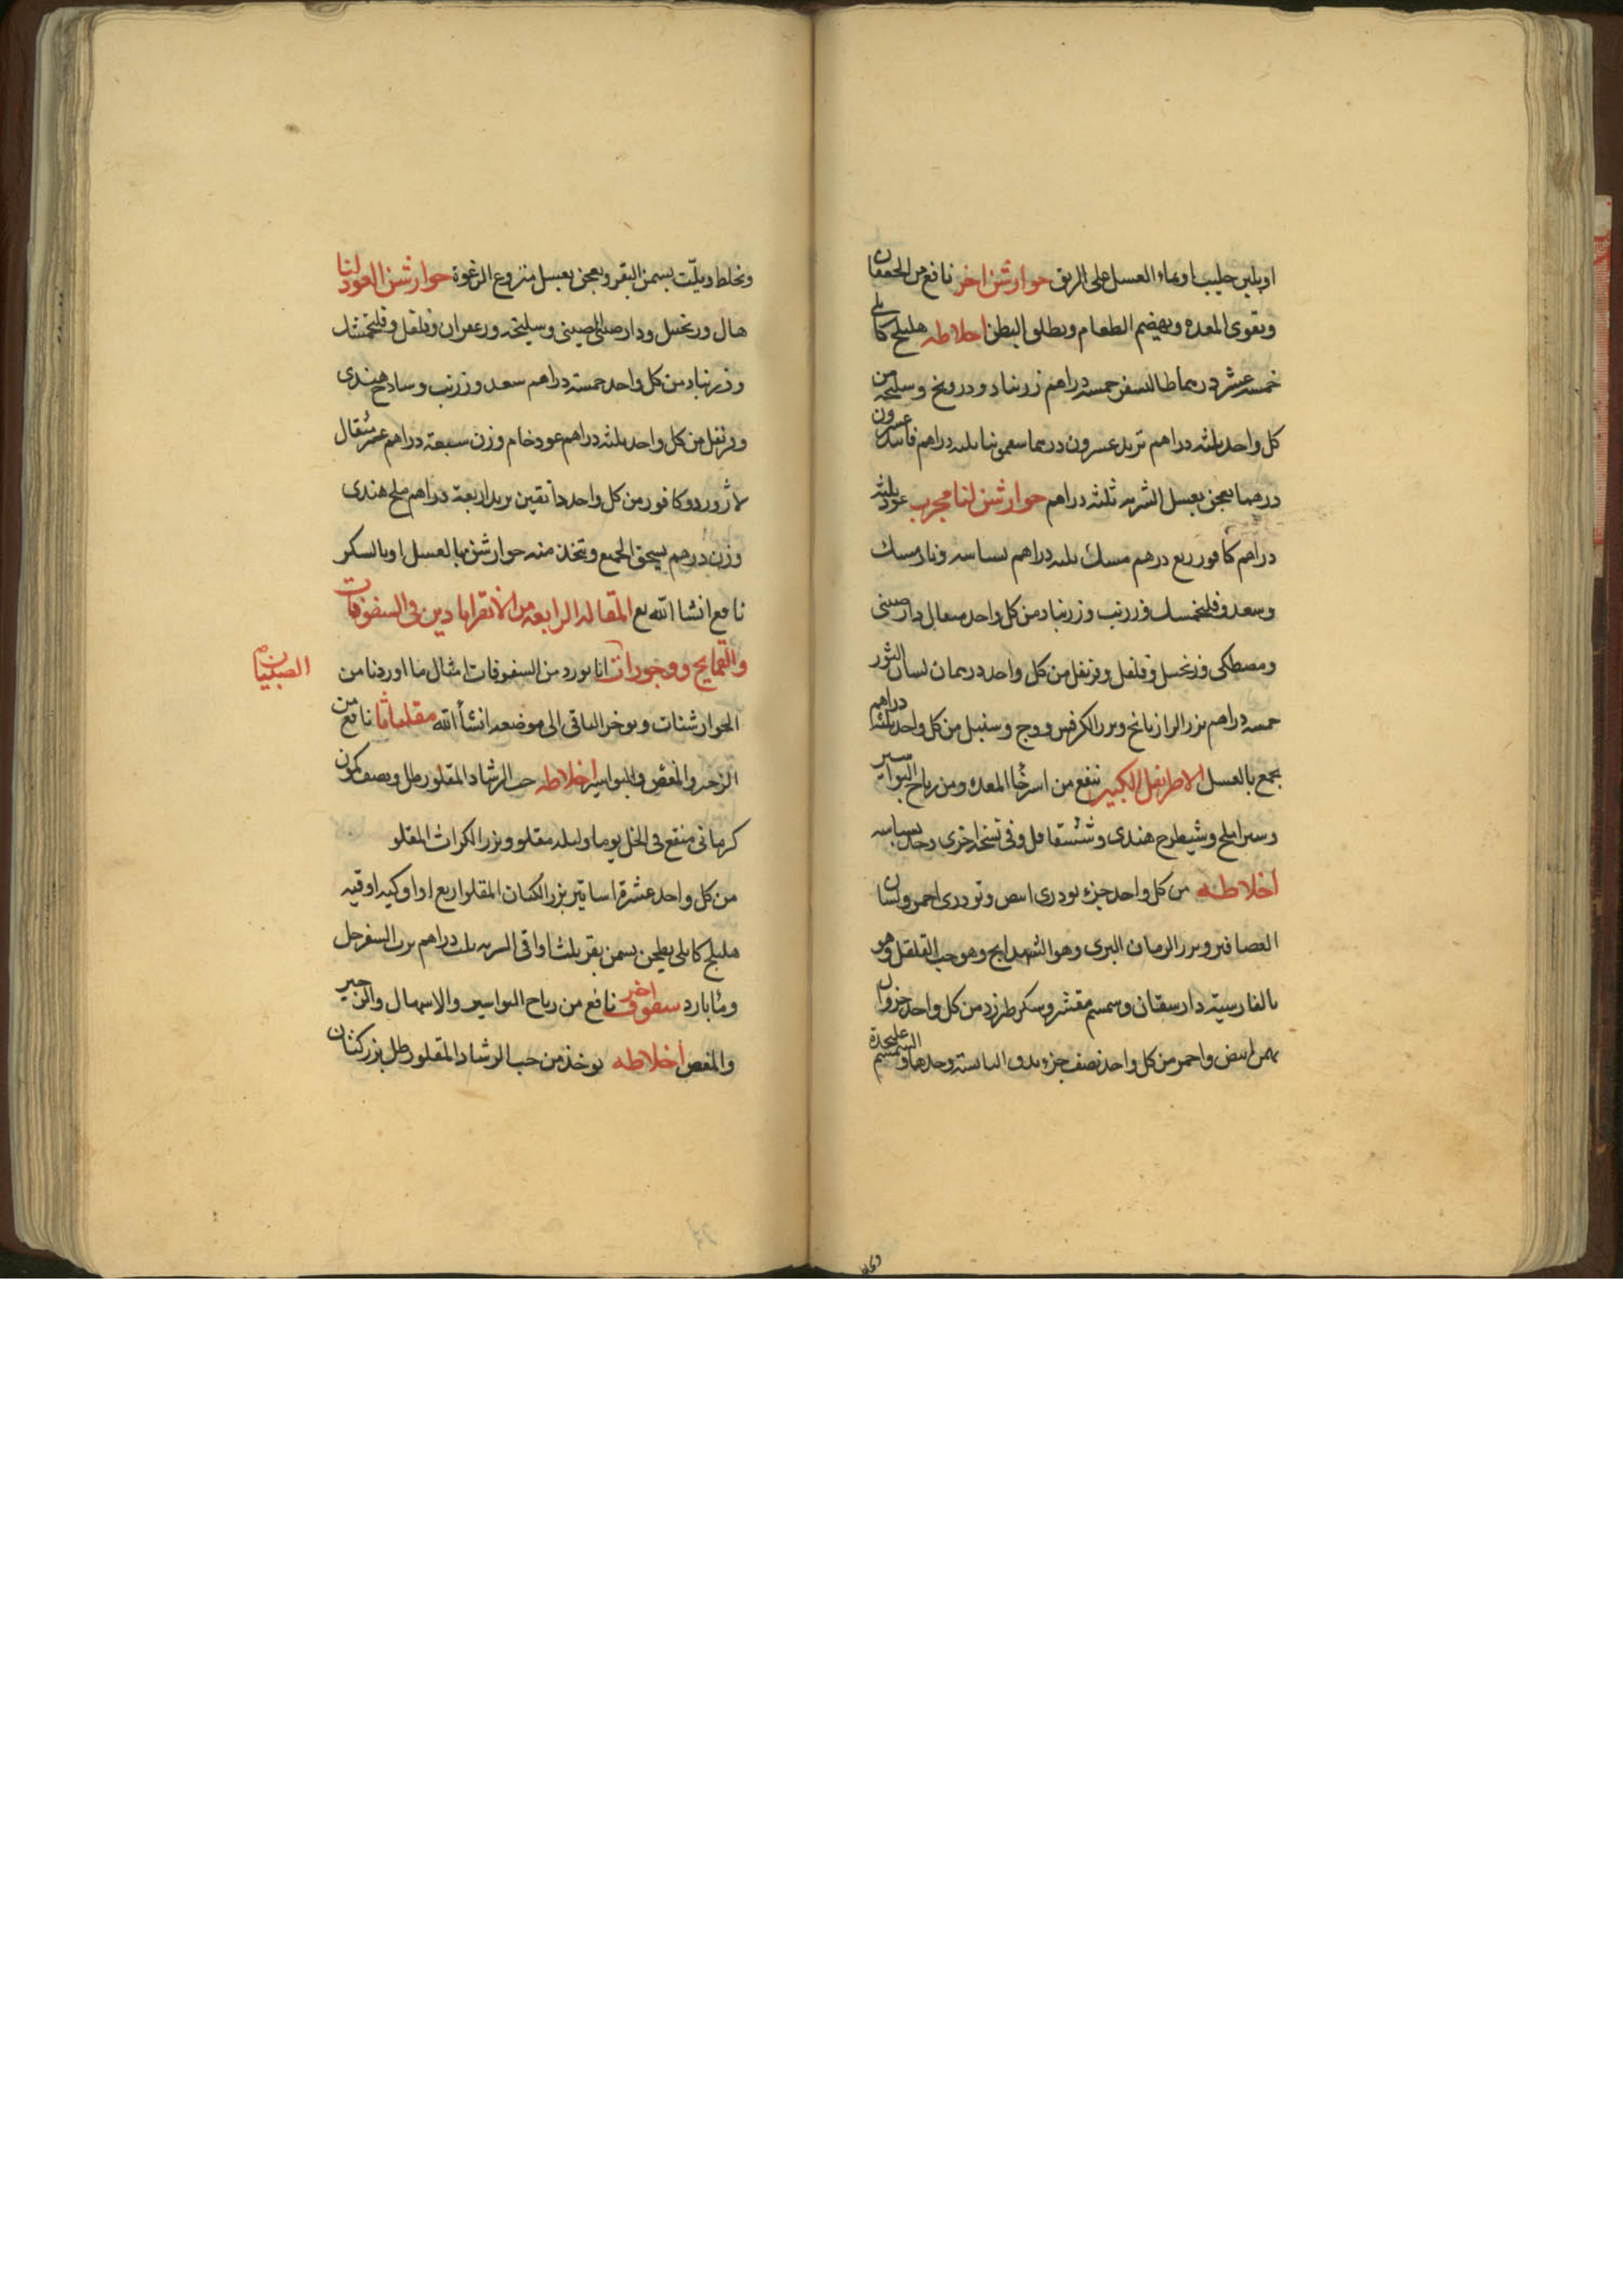 او بلبن حليب او بماء العسل على الريق جوارشن اخر نافع من الخفقان
ويقوى المعده ويهضم الطعام ويطلق البطن اخلاطه هليلج كابلي
خمسه عشر درهما طاليسفر خمسه دراهم زرنباد ودرونج وسليخه من
كل واحد ثلثه دراهم تربد عشرون درهما سقمونيا ثلثه دراهم فانيد عشرون
درهما يعجن بعسل الشربه ثلثه دراهم جوارشن لنا مجرب عود ثلثه
دراهم كافور ربع درهم مسك ثلثه دراهم بسباسه ونارمسك
وسعد وفلنجمسك وزرنب وزرنباد من كل واحد مثقال دارصينى
ومصطكى وزنجبيل وفلفل وقرنفل من كل واحد درهمان لسان الثور
خمسه دراهم بزر الرازيانج وبزر الكرفس ووج وسنبل من كل واحد ثلثه دراهم
يجمع بالعسل الاطريفل الكبير ينفع من استرخا المعده ومن رياح البواسير
وشيطرج هندى وشقاقل وفى نسخه اخرى بسباسه
اخلاطه من كل واحد جزء تودرى ابيض وتودرى احمر ولسان
العصافير وبزر الرمان البرى وهو الشهدانج وهو حب القلقل وهو
بالفارسيه وسمسم مقشر وسكر طبرزد من كل واحد جزوان
بهمن ابيض واحمر من كل واحد نصف جزء يدق اليابسه وحدها والسمسم عليحدة
وتخلط ويلت بسمن البقر ويعجن بعسل منزوع الرغوة جوارشن العود لنا
هال وزنجبيل ودارصينى وسليخه وزعفران وفلفل وفلنجمشك
وزرنباد من كل واحد خمسة دراهم سعد وزرنب وسادج هندى
وقرنفل من كل واحد ثلثه دراهم عود خام وزن سبعة دراهم مثقال
وكافور من كل واحد دانقين تربد اربعة دراهم ملح هندى
وزن درهم يسحق الجميع ويتخذ منه جوارشن بالعسل او بالسكر
نافع انشا الله تع المقاله الرابعه من الاقراباذين فى السفوفات
والقمايح ووجورات الصبيان انا نورد من السفوفات امثال ما اوردنا من
الجوارشنات ونوخر الباقى الى موضعه انشأ الله مقلياثا نافع من
الزحير والمغص والبواسير اخلاطه حب الرشاد المقلو رطل ونصف كمون
كرمانى منقع فى الخل يوما وليله مقلو وبزر الكراث المقلو
من كل واحد عشرة اساتير بزر الكتان المقلو اربع اواقى اوقيه
هليلج كابلى يطجن بسمن بقر ثلث اواقى الشربه ثلث دراهم برب السفرجل
وما بارد سفوف اخر نافع من رياح البواسير والاسهال والزحير
والمغص اخلاطه يوخذ من حب الرشاد المقلو رطل بزر كتان